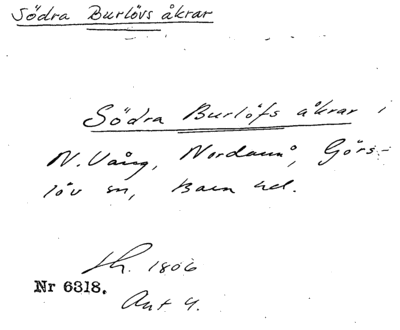 Södra Burlövs åkrar
Södra Burlöfs åkrar i
N. Vång, Nordanå, Görs-
löv sn, Bara hd.
Lh. 1806
Nr 6318.
Akt 4.